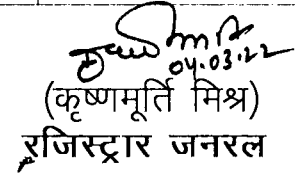 04.03.22
(कृष्णमूर्ति मिश्र)
रजिस्ट्रार जनरल